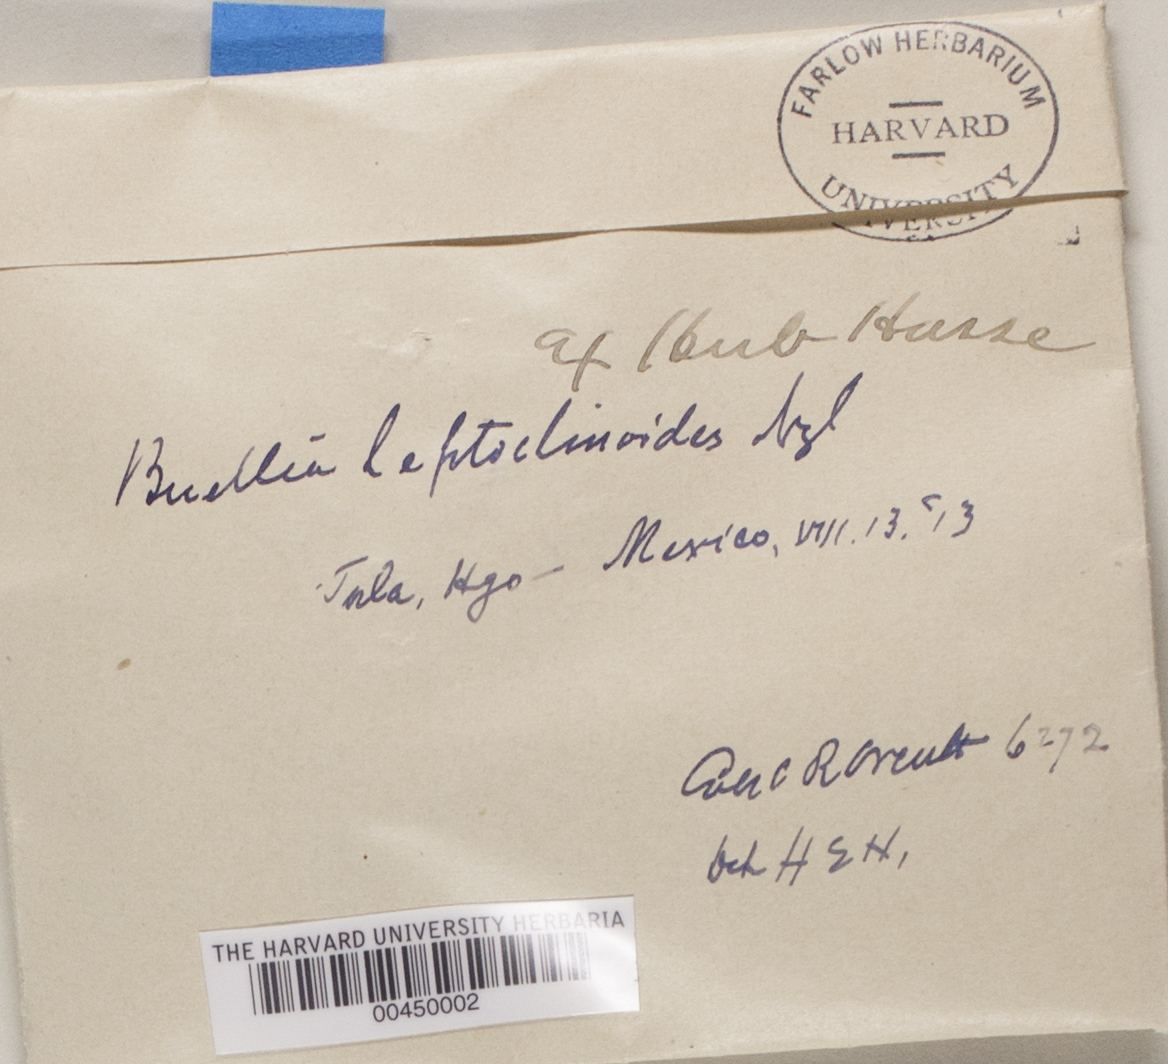 FARLOW HERBARIUM
HARVARD
UNIVERSITY
ex Herb Hasse
Buellia leptoclinoides Nyl
Tula, Hgo - Mexico, VIII.13.'13
C R Orcutt 6272
det H E H.
THE HARVARD UNIVERSITY HERBARIA
00450002